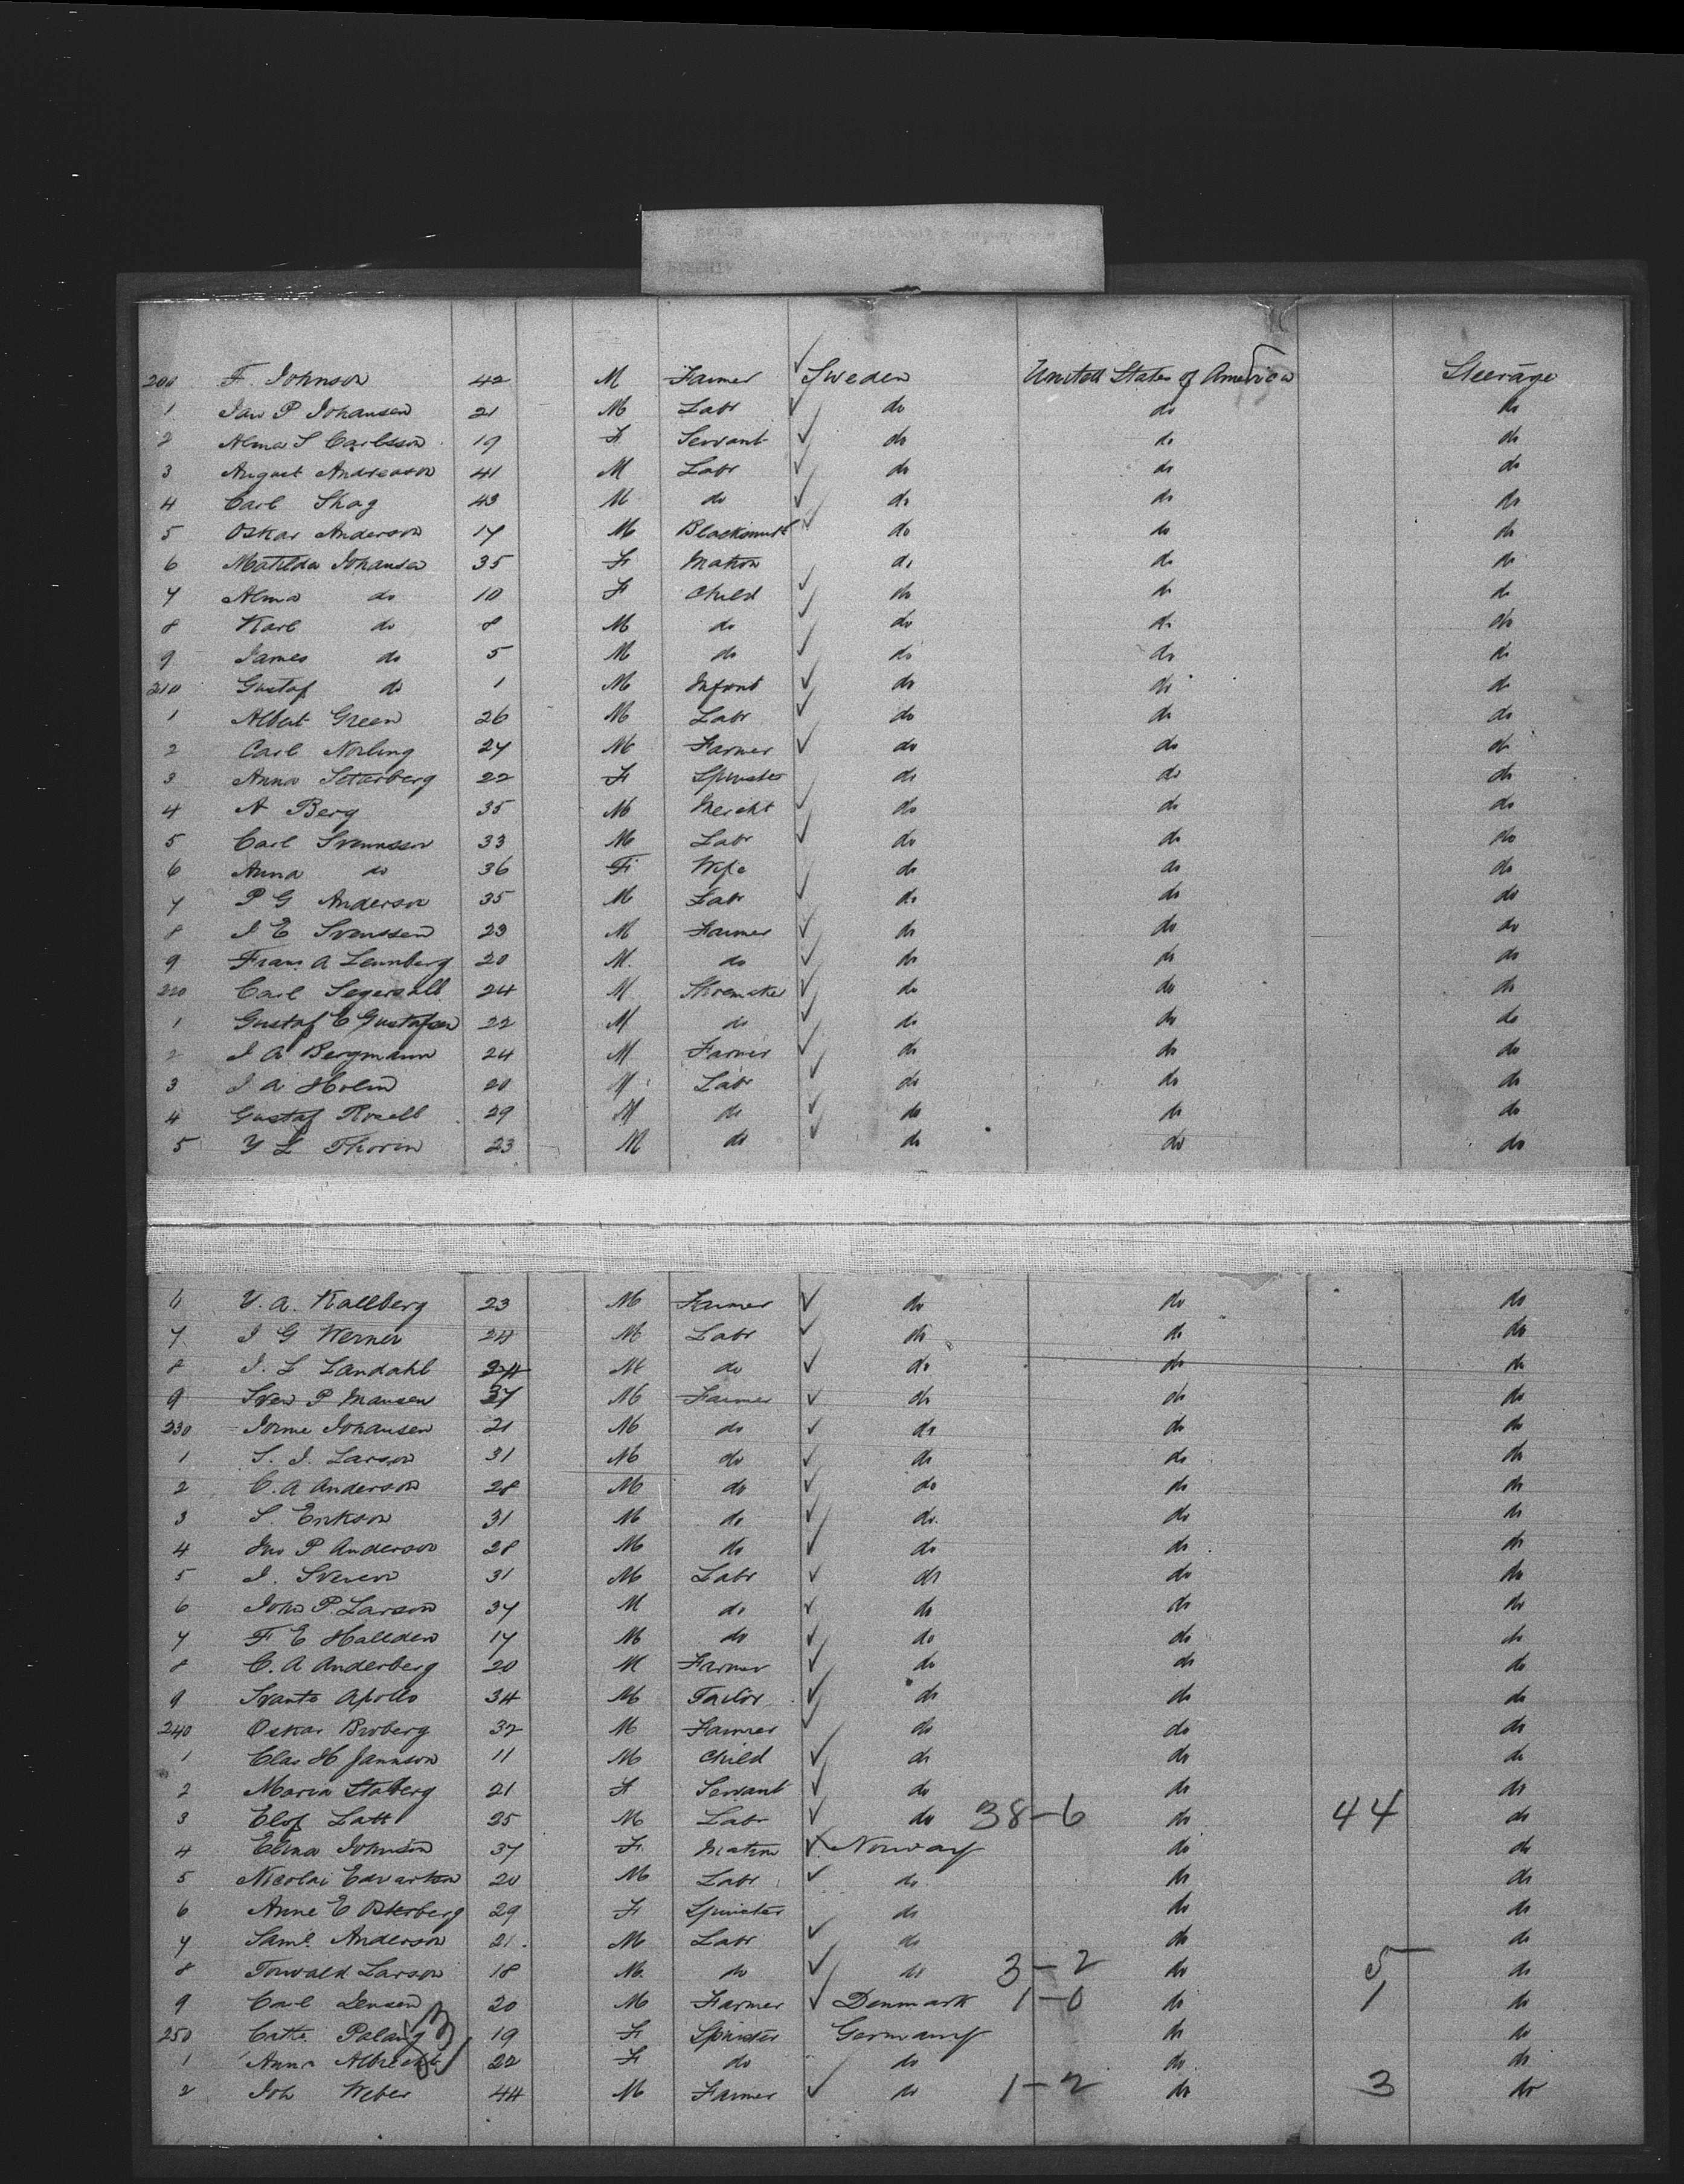 200 F. Johnson 42 M Farmer Sweden United States of America Steerage
1 Jan P Johansen 21 M Labr do do do
2 Alma S Carlsson 19 F Servant do do do
3 August Andreason 41 M Labr do do do
4 Carl Skog 43 M do do do do
5 Oskar Anderson 17 M Blacksmith do do do
6 Matilda Johansen 35 F Matron do do do
7 Alma do 10 F Child do do do
8 Karl do 8 M do do do do
9 James do 5 M do do do do
210 Gustaf do 1 M Infant do do do
1 Albert Green 26 M Labr do do do
2 Carl Norling 27 M Farmer do do do
3 Anna Setterberg 22 F Spinster do do do
4 A Berg 35 M Mercht do do do
5 Carl Svennsson 33 M Labr do do do
6 Anna do 36 F Wife do do do
7 P G Anderson 35 M Labr do do do
8 J E Svenssen 23 M Farmer do do do
9 Frans A Lennberg 20 M do do do do
220 Carl Segersall 24 M Shoemaker do do do
1 Gustaf E Gustafsen 22 M do do do do
2 J A Bergmann 24 M Farmer do do do
3 J A Holm 20 M Labr do do do
4 Gustaf Rosell 29 M do do do do
5 Y L Thorin 23 M do do do do
6 Y. A. Kallberg 23 M Farmer do do do
7 J G Werner 24 M Labr do do do
8 J. L Landahl 24 M do do do do
9 Sven P Mansen 37 M Farmer do do do
230 Johansen 21 M do do do do
1 S. J. Larson 31 M do do do do
2 C. A Anderson 28 M do do do do
3 S. Erikson 31 M do do do do
4 Jno P Anderson 28 M do do do do
5 J. 31 M Labr do do do
6 John P. Larson 37 M do do do do
7 F E Hallden 17 M do do do do
8 C. A Anderberg 20 M Farmer do do do
9 Svante Apollo 34 M Tailor do do do
240 Oskar Broberg 32 M Farmer do do do
1 Clas H Jannson 11 M Child do do do
2 Maria Staberg 21 F Servant do do do
3 Elof Latt 25 M Labr do 38-6 do 44 do
4 Elina Johnson 37 F. Matron Norway do do
5 Nicolai Edvartson 20 M Labr do do do
6 Anne E Osterberg 29 F Spinster do do do
7 Saml. Anderson 21 M Labr do do do
8 Torwald Larson 18 M do do 3-2 do 5 do
9 Carl Jensen 20 M Farmer Denmark 1-0 do 1 do
250 Cathe Palang 19 F Spinster Germany do do
1 Anna Albrecht 22 F do do do do
2 Joh Weber 44 M Farmer do 1-2 do 3 do